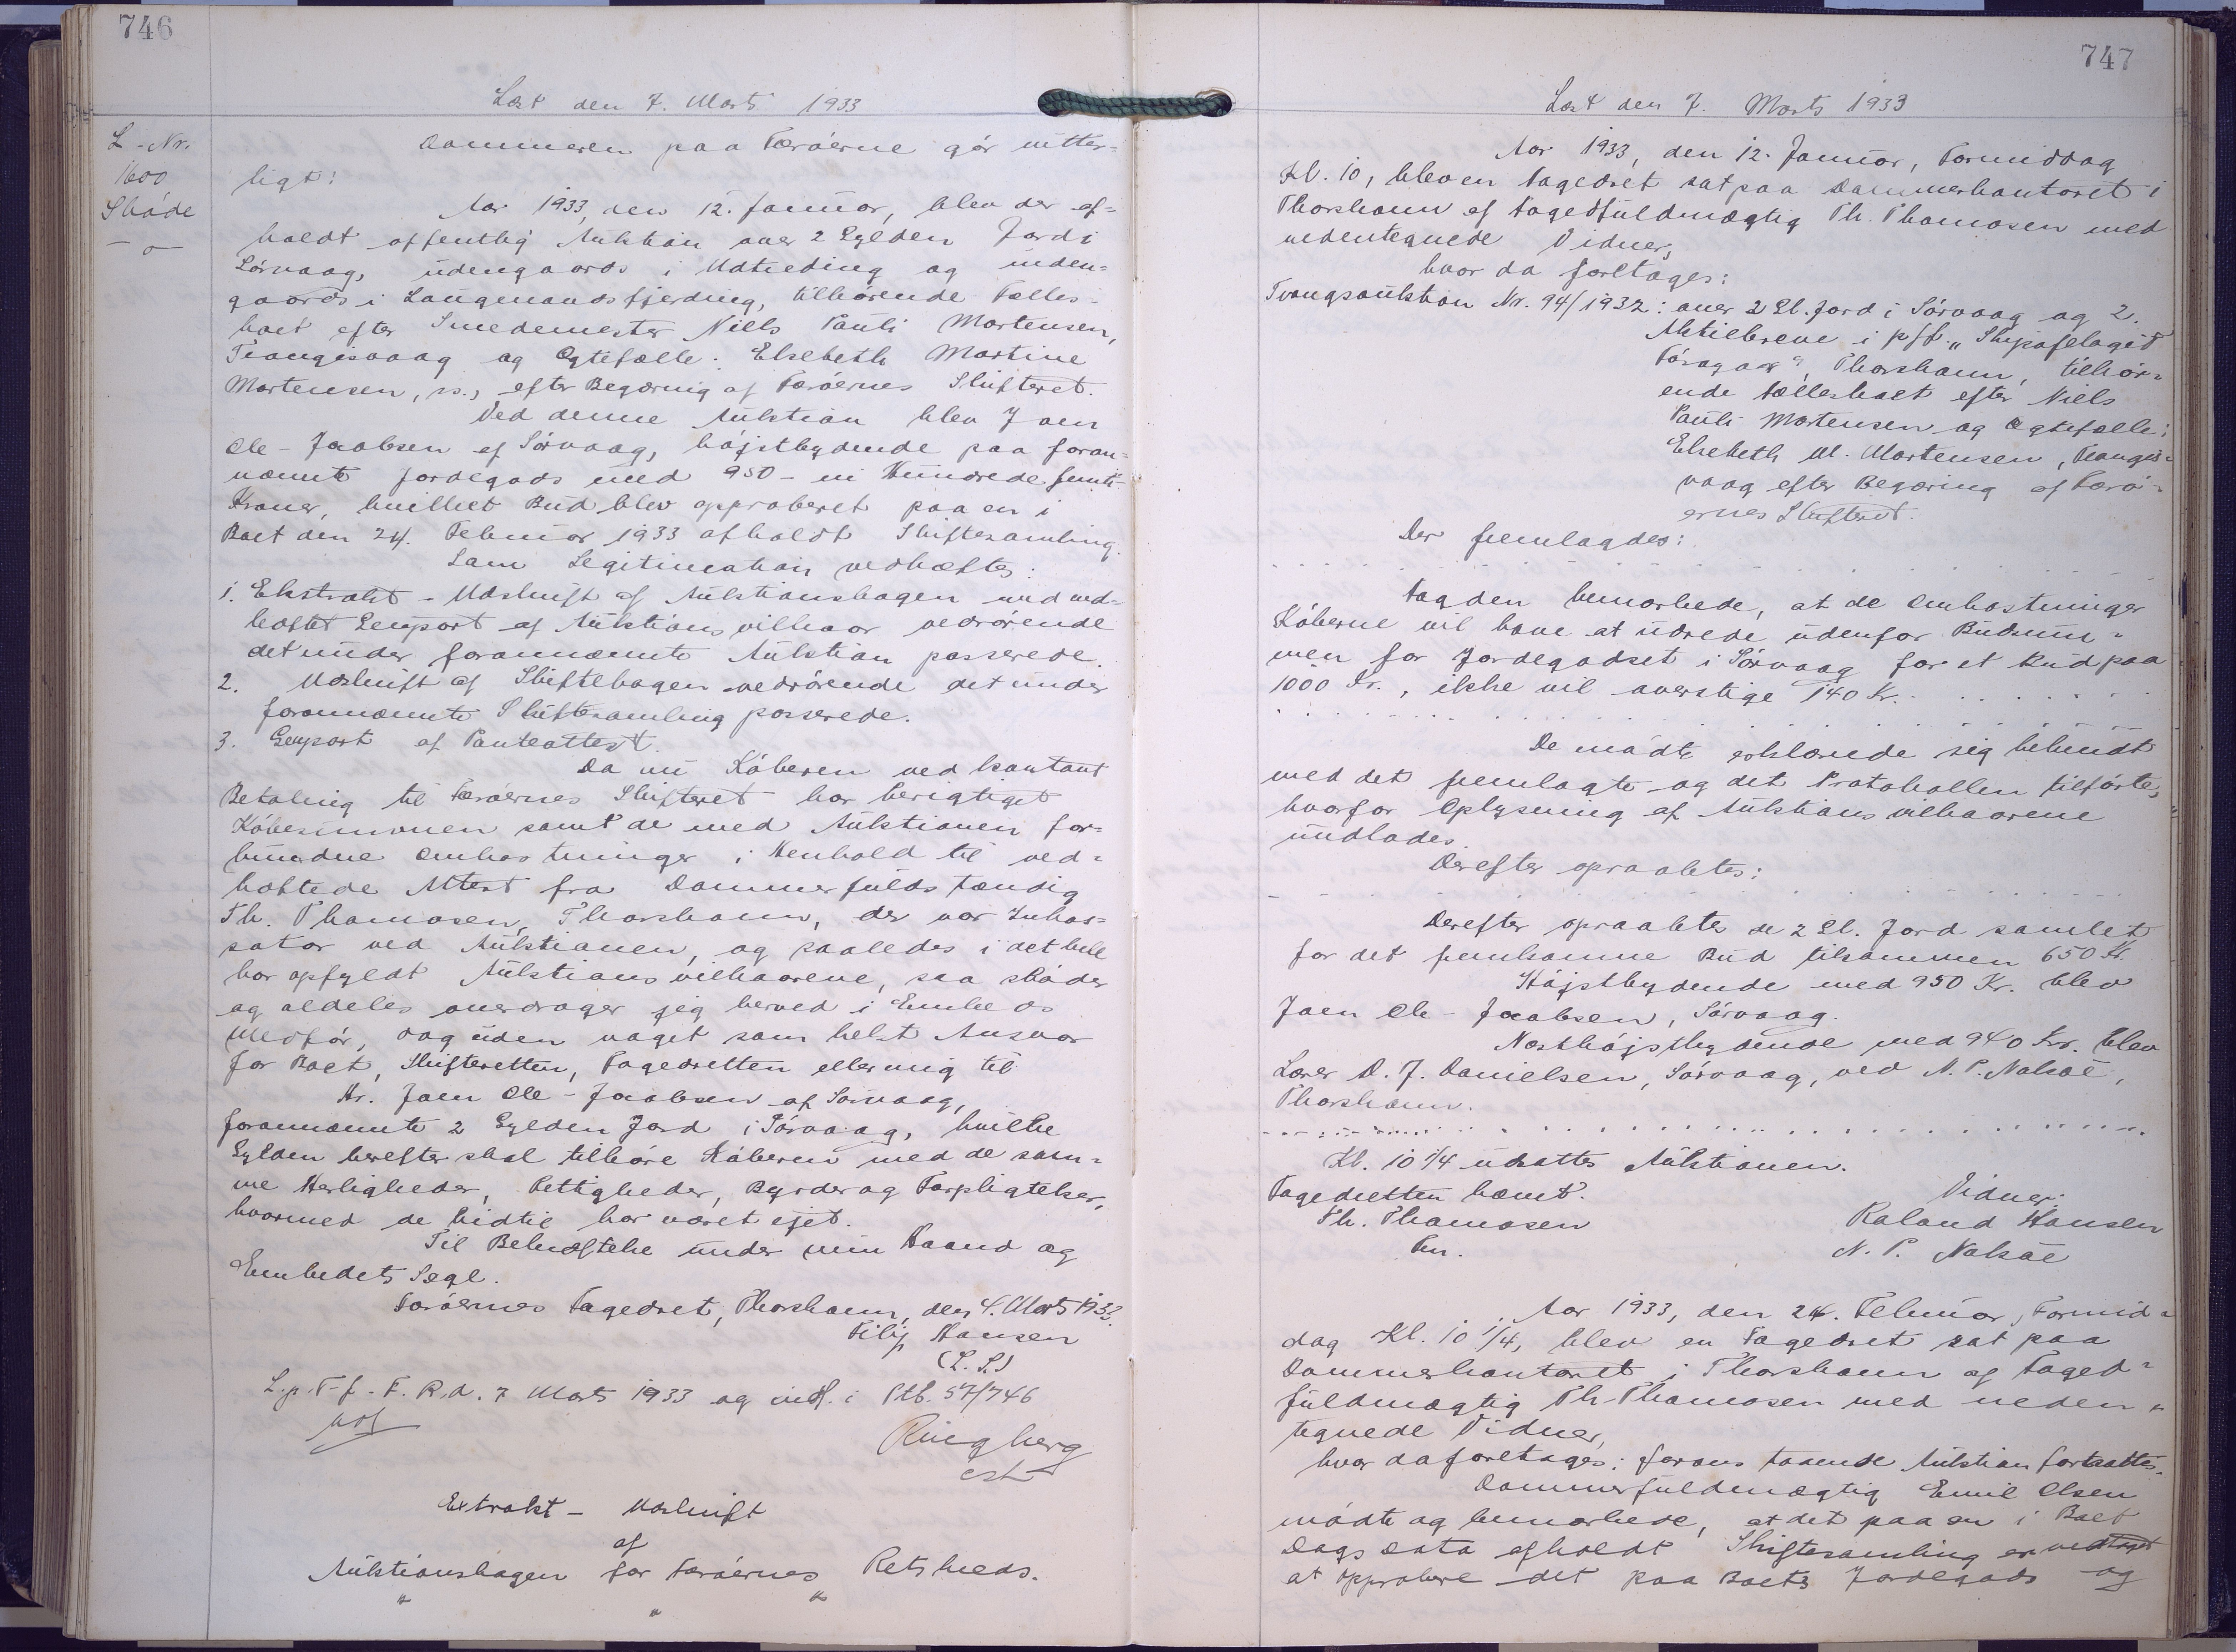 746
Læst den 7. Marts 1933
L-Nr.
1600
Skøde
Dommeren paa Færøerne gør vitter-
ligt:
Aar 1933, den 12. Januar, blev der af-
holdt offentlig Auktion over 2 Gylden Jord i
Sørvaag, udengaards i Udtieding og inden-
gaards i Laugmandsfjerding, tilhørende Fælles-
boet efter Smedemester Niels Pauli Mortensen,
Trangisvaag og Ægtefælle: Elsebeth Martine
Mortensen, ss., efter Begæring af Færøernes Skifteret.
Ved denne Auktion blev Joen
Ole-Jacobsen af Sørvaag, højstbydende paa foran-
nævnte Jordegods med 950 - ni Hundrede femti-
Kroner, hvilket Bud blev approberet paa en i
Boet den 24. Februar 1933 afholdt Skiftesamling.
Som Legitimation vedhæftes:
1. Ekstrakt-Udskrift af Auktionsbogen med ved-
hæftet Genpart af Auktionsvilkaar vedrørende
det under forannævnte Auktion passerede.
2. Udskrift af Skiftebogen vedrørende det under
forannævnte Skiftesamling passerede.
3. Genpart af Panteattest.
Da nu Køberen ved kontant
Betaling til Færøernes Skifteret har berigtiget
Købesummen samt de med Auktionen for-
bundne Omkostninger i Henhold til ved-
hæftede Attest fra Dommerfuldmægtig
Th. Thomasen, Thorshavn, der var Inkas-
sator ved Auktionen, og saaledes i det hele
har opfyldt Auktionsvilkaarene, saa skøder
og aldeles overdrager jeg herved i Embeds
Medfør, dog uden noget som helst Ansvar
for Boet, Skifteretten, Fogedretten eller mig til
Hr. Joen Ole-Jacobsen af Sørvaag,
forannævnte 2 Gylden Jord i Sørvaag, hvilke
Gylden herefter skal tilhøre Køberen med de sam-
me Herligheder, Rettigheder, Byrder og Forpligtelser,
hvormed de hidtil har været ejet.
Til Bekræftelse under min Haand og
Embedets Segl.
Færøernes Fogedret, Thorshavn, den 4. Marts 1933.
Filip Hansen
(L. S.)
L. p. T. f. F. R. d. 7 Marts 1933 og indf. i Ptb. 57/746
Ringberg
cst
Extrakt - Udskrift
af
Auktionsbogen for Færøernes Retskreds.
" " "
747
Læst den 7. Marts 1933
Aar 1933, den 12. Januar, Formiddag
Kl. 10, blev en Fogedret sat paa Dommerkontoret i
Thorshavn af Fogedfuldmægtig Th. Thomasen med
nedentegnede Vidner,
hvor da foretages:
Tvangsauktion Nr. 94/1932: over 2 Gl. Jord i Sørvaag og 2.
Aktiebreve i p/f. "Skipafelagið
Føroyar", Thorshavn, tilhør-
ende Fællesboet efter Niels
Pauli Mortensen og Ægtefælle:
Elsebeth M. Mortensen, Trangis-
vaag efter Begæring af Færø-
ernes Skifteret.
Der fremlagdes:
. . . . . . . . . . . . . . . . . . . .
Fogden bemærkede, at de Omkostninger
Køberne vil have at udrede udenfor Budsum-
men for Jordegodset i Sørvaag for et Bud paa
1000 Kr., ikke vil overstige 140 Kr. . . . . . . .
. . . . . . . . . . . . . . . . . . . .
De mødte erklærede sig bekendt
med det fremlagte og det Protokollen tilførte,
hvorfor Oplysning af Auktionsvilkaarene
undlodes.
Derefter opraabtes:
. . . . . . . . . . . . . . . . . . . .
Derefter opraabtes de 2 Gl. Jord samlet
for det fremkomne Bud tilsammen 650 Kr.
Højstbydende med 950 Kr. blev
Joen Ole-Jacobsen, Sørvaag.
Næsthøjstbydende med 940 Kr. blev
Lærer D. J. Danielsen, Sørvaag, ved N. P. Nolsøe,
Thorshavn.
. . . . . . . . . . . . . . . . . . . .
Kl. 10 1/4 udsattes Auktionen.
Fogedretten hævet.
Vidner:
Th. Thomasen
Roland Hansen
Fm.
N. P. Nolsøe
Aar 1933, den 24. Februar, Formid-
dag Kl. 10 1/4, blev en Fogedret sat paa
Dommerkontoret i Thorshavn af Foged-
fuldmægtig Th. Thomasen med neden-
tegnede Vidner,
hvor da foretages: foranstaaende Auktion fortsattes.
Dommerfuldmægtig Emil Olsen
mødte og bemærkede, at det paa en i Boet
Dags Dato afholdt Skiftesamling er vedtaget
at approbere det paa Boets Jordegods og